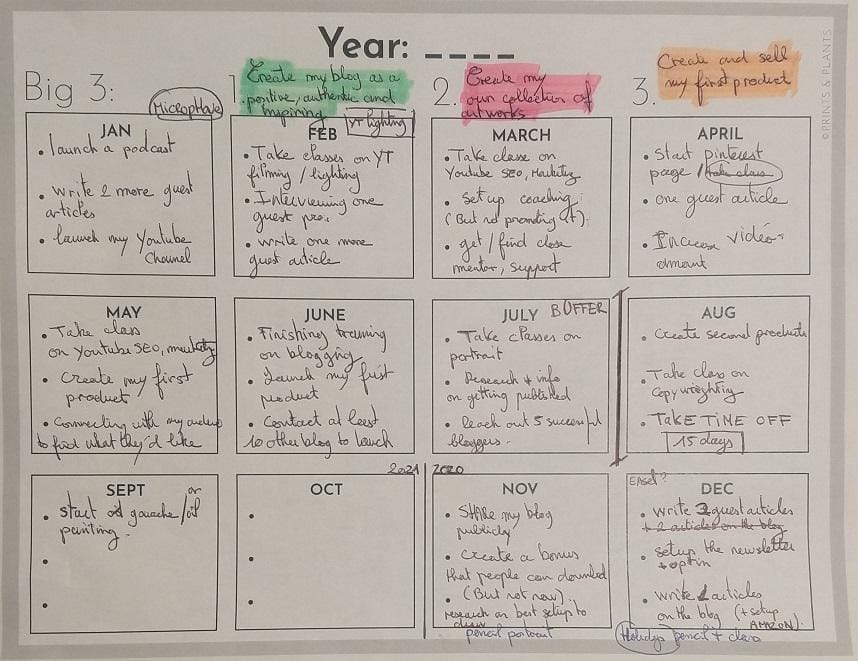 Year: _ _ _ _
Big 3:
1. Create my blog as a
positive, authentic and
inspiring
2. Create my
own collection of
artworks
3. Create and sell
my first product
©PRINTS & PLANTS
Microphone
YT lighting
JAN
• launch a podcast
• write 2 more guest
articles
• launch my Youtube
Channel
FEB
• Take classes on YT
filming / lighting
• Interviewing one
guest pro.
• write one more
guest article
MARCH
• Take classe on
Youtube SEO, Marketing
• set up coaching
(But not promoting it).
• get / find close
mentor, support
APRIL
• Start pinterest
page / take class
• one guest article
• vidéo
MAY
• Take class
on YouTube SEO, marketing
• Create my first
product
• Connecting with my audience
to find what they'd like
JUNE
• Finishing training
on blogging
• Launch my first
product
• Contact at least
10 other blog to launch
JULY BUFFER
• Take classes on
portrait
• Research + info
on getting published
• Reach out 5 successful
bloggers.
AUG
• Create second products
• Take class on
copywrighting
• TAKE TIME OFF
15 days
2021 2020
SEPT
• start gouache / or oil
painting.
•
•
OCT
•
•
•
NOV
• Share my blog
publicly
• create a bonus
that people can download
(But not now).
• research on best setup to
draw
pencil portrait
Easel?
DEC
• write 3 guest articles
+ 2 articles on the blog
• setup the newsletter
+ optin
• write 1 articles
on the blog (+ setup
AMAZON).
Holidays pencil + class